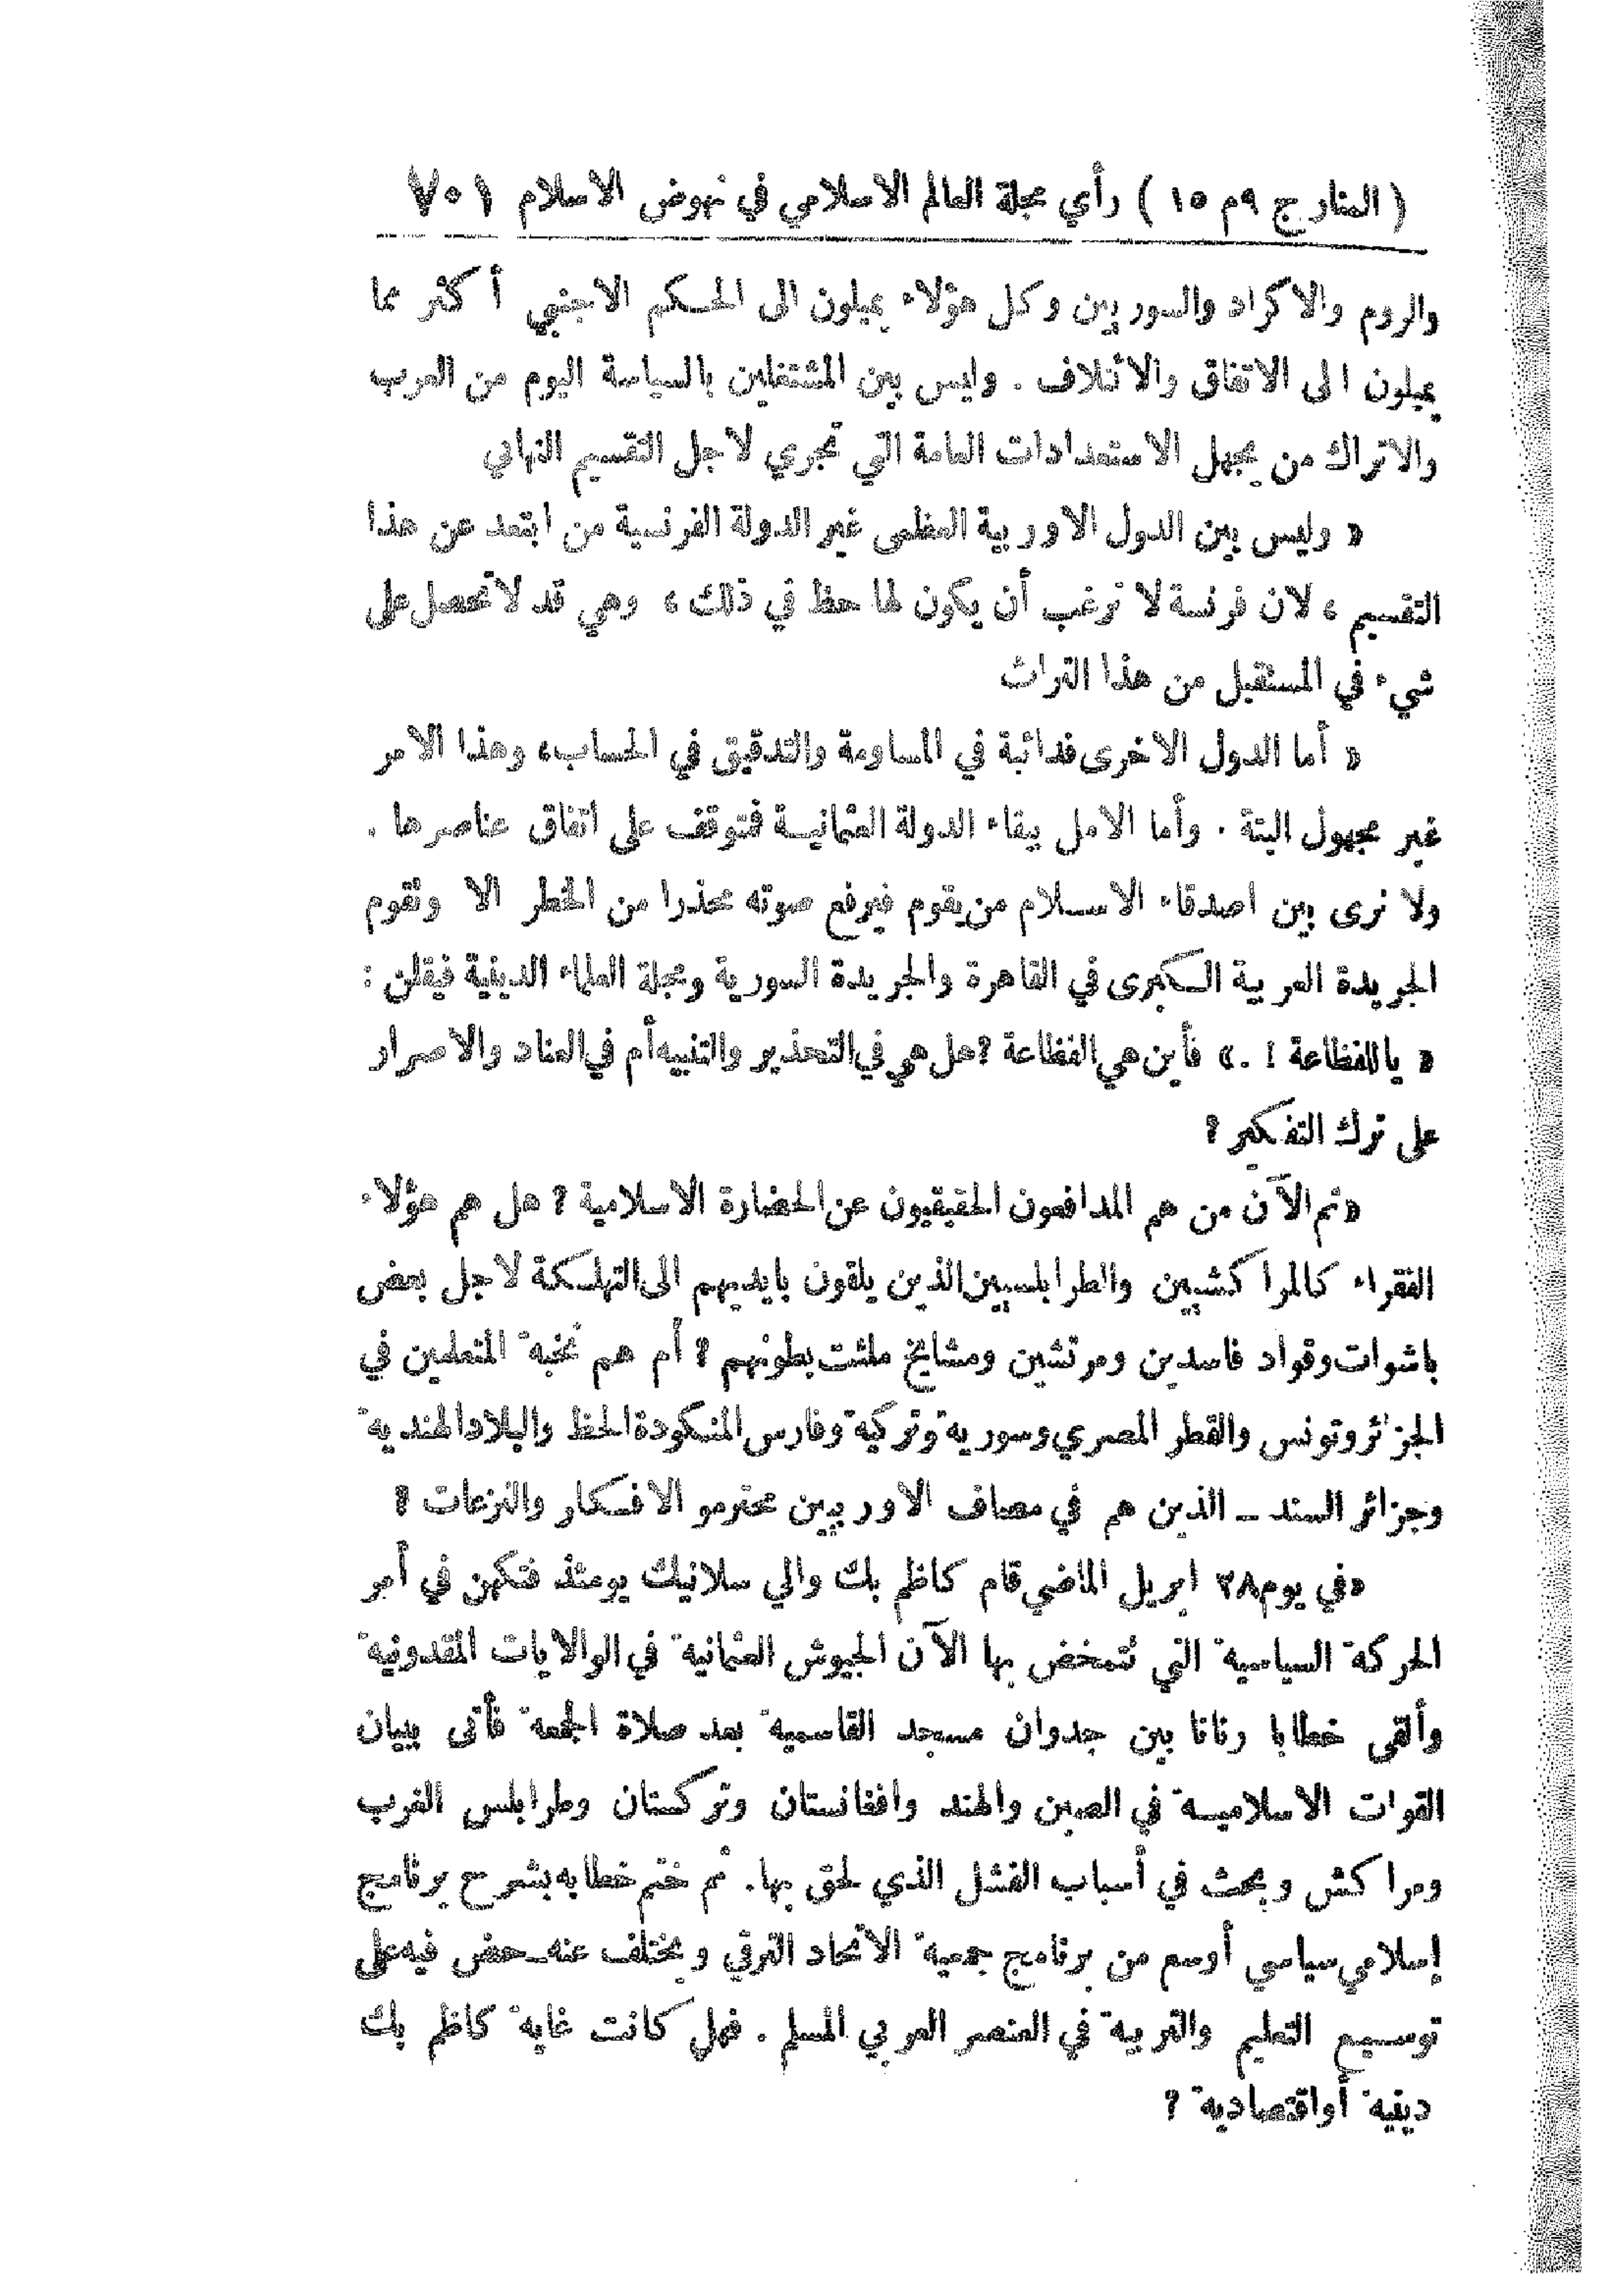 ( المنار ج ٩ م ١٥ ) رأي مجلة العالم الاسلامي في نهوض الاسلام ٧٥١
والروم والاكراد والسوريين وكل هؤلاء يميلون الى الحكم الاجنبي أكثر مما
يميلون الى الاتفاق والائتلاف . وليس بين المشتغلين بالسياسة اليوم من العرب
والاتراك من يجهل الاستعدادات العامة التي تجري لاجل التقسيم النهائي
« وليس بين الدول الاوربية العظمى غير الدولة الفرنسية من ابتعد عن هذا
التقسيم ، لان فرنسة لا ترغب أن يكون لها حظ في ذلك ، وهي قد لا تحصل على
شيء في المستقبل من هذا التراث
« أما الدول الاخرى فدائبة في المساومة والتدقيق في الحساب ، وهذا الامر
غير مجهول البتة . وأما الامل ببقاء الدولة العثمانية فمتوقف على اتفاق عناصرها .
ولا نرى بين اصدقاء الاسلام من يقوم فيرفع صوته محذرا من الخطر الا وتقوم
الجريدة العربية الكبرى في القاهرة والجريدة السورية ومجلة العلماء الدينية فيقلن :
« يا للفظاعة ! . » فأين هي الفظاعة ? هل هي في التحذير والتنبيه أم في العناد والاصرار
على ترك التفكير ?
« ثم الآن من هم المدافعون الحقيقيون عن الحضارة الاسلامية ? هل هم هؤلاء
الفقراء كالمراكشيين والطرابلسيين الذين يلقون بايديهم الى التهلكة لاجل بعض
باشوات وقواد فاسدين ومرتشين ومشايخ ملئت بطونهم ? أم هم نخبة المتعلمين في
الجزائر وتونس والقطر المصري وسورية وتركية وفارس المنكودة الحظ والبلاد الهندية
وجزائر السند ــ الذين هم في مصاف الاوربيين محترمو الافكار والنزعات ?
« في يوم ٢٨ ابريل الماضي قام كاظم بك والي سلانيك يومئذ فتكهن في أمر
الحركة السياسية التي تتمخض بها الآن الجيوش العثمانية في الوالايات المقدونية
وألقى خطابا رنانا بين جدوان مسجد القاسمية بعد صلاة الجمعة فأتى ببيان
القوات الاسلامية في الصين والهند وافغانستان وتركستان وطرابلس الغرب
ومراكش وبحث في أسباب الفشل الذي لحق بها . ثم ختم خطابه بشرح برنامج
إسلامي سياسي أوسع من برنامج جمعية الاتحاد الترقي ويختلف عنه ــ حض فيه على
توسيع التعليم والتربية في العنصر العربي المسلم . فهل كانت غاية كاظم بك
دينية أو اقتصادية ?